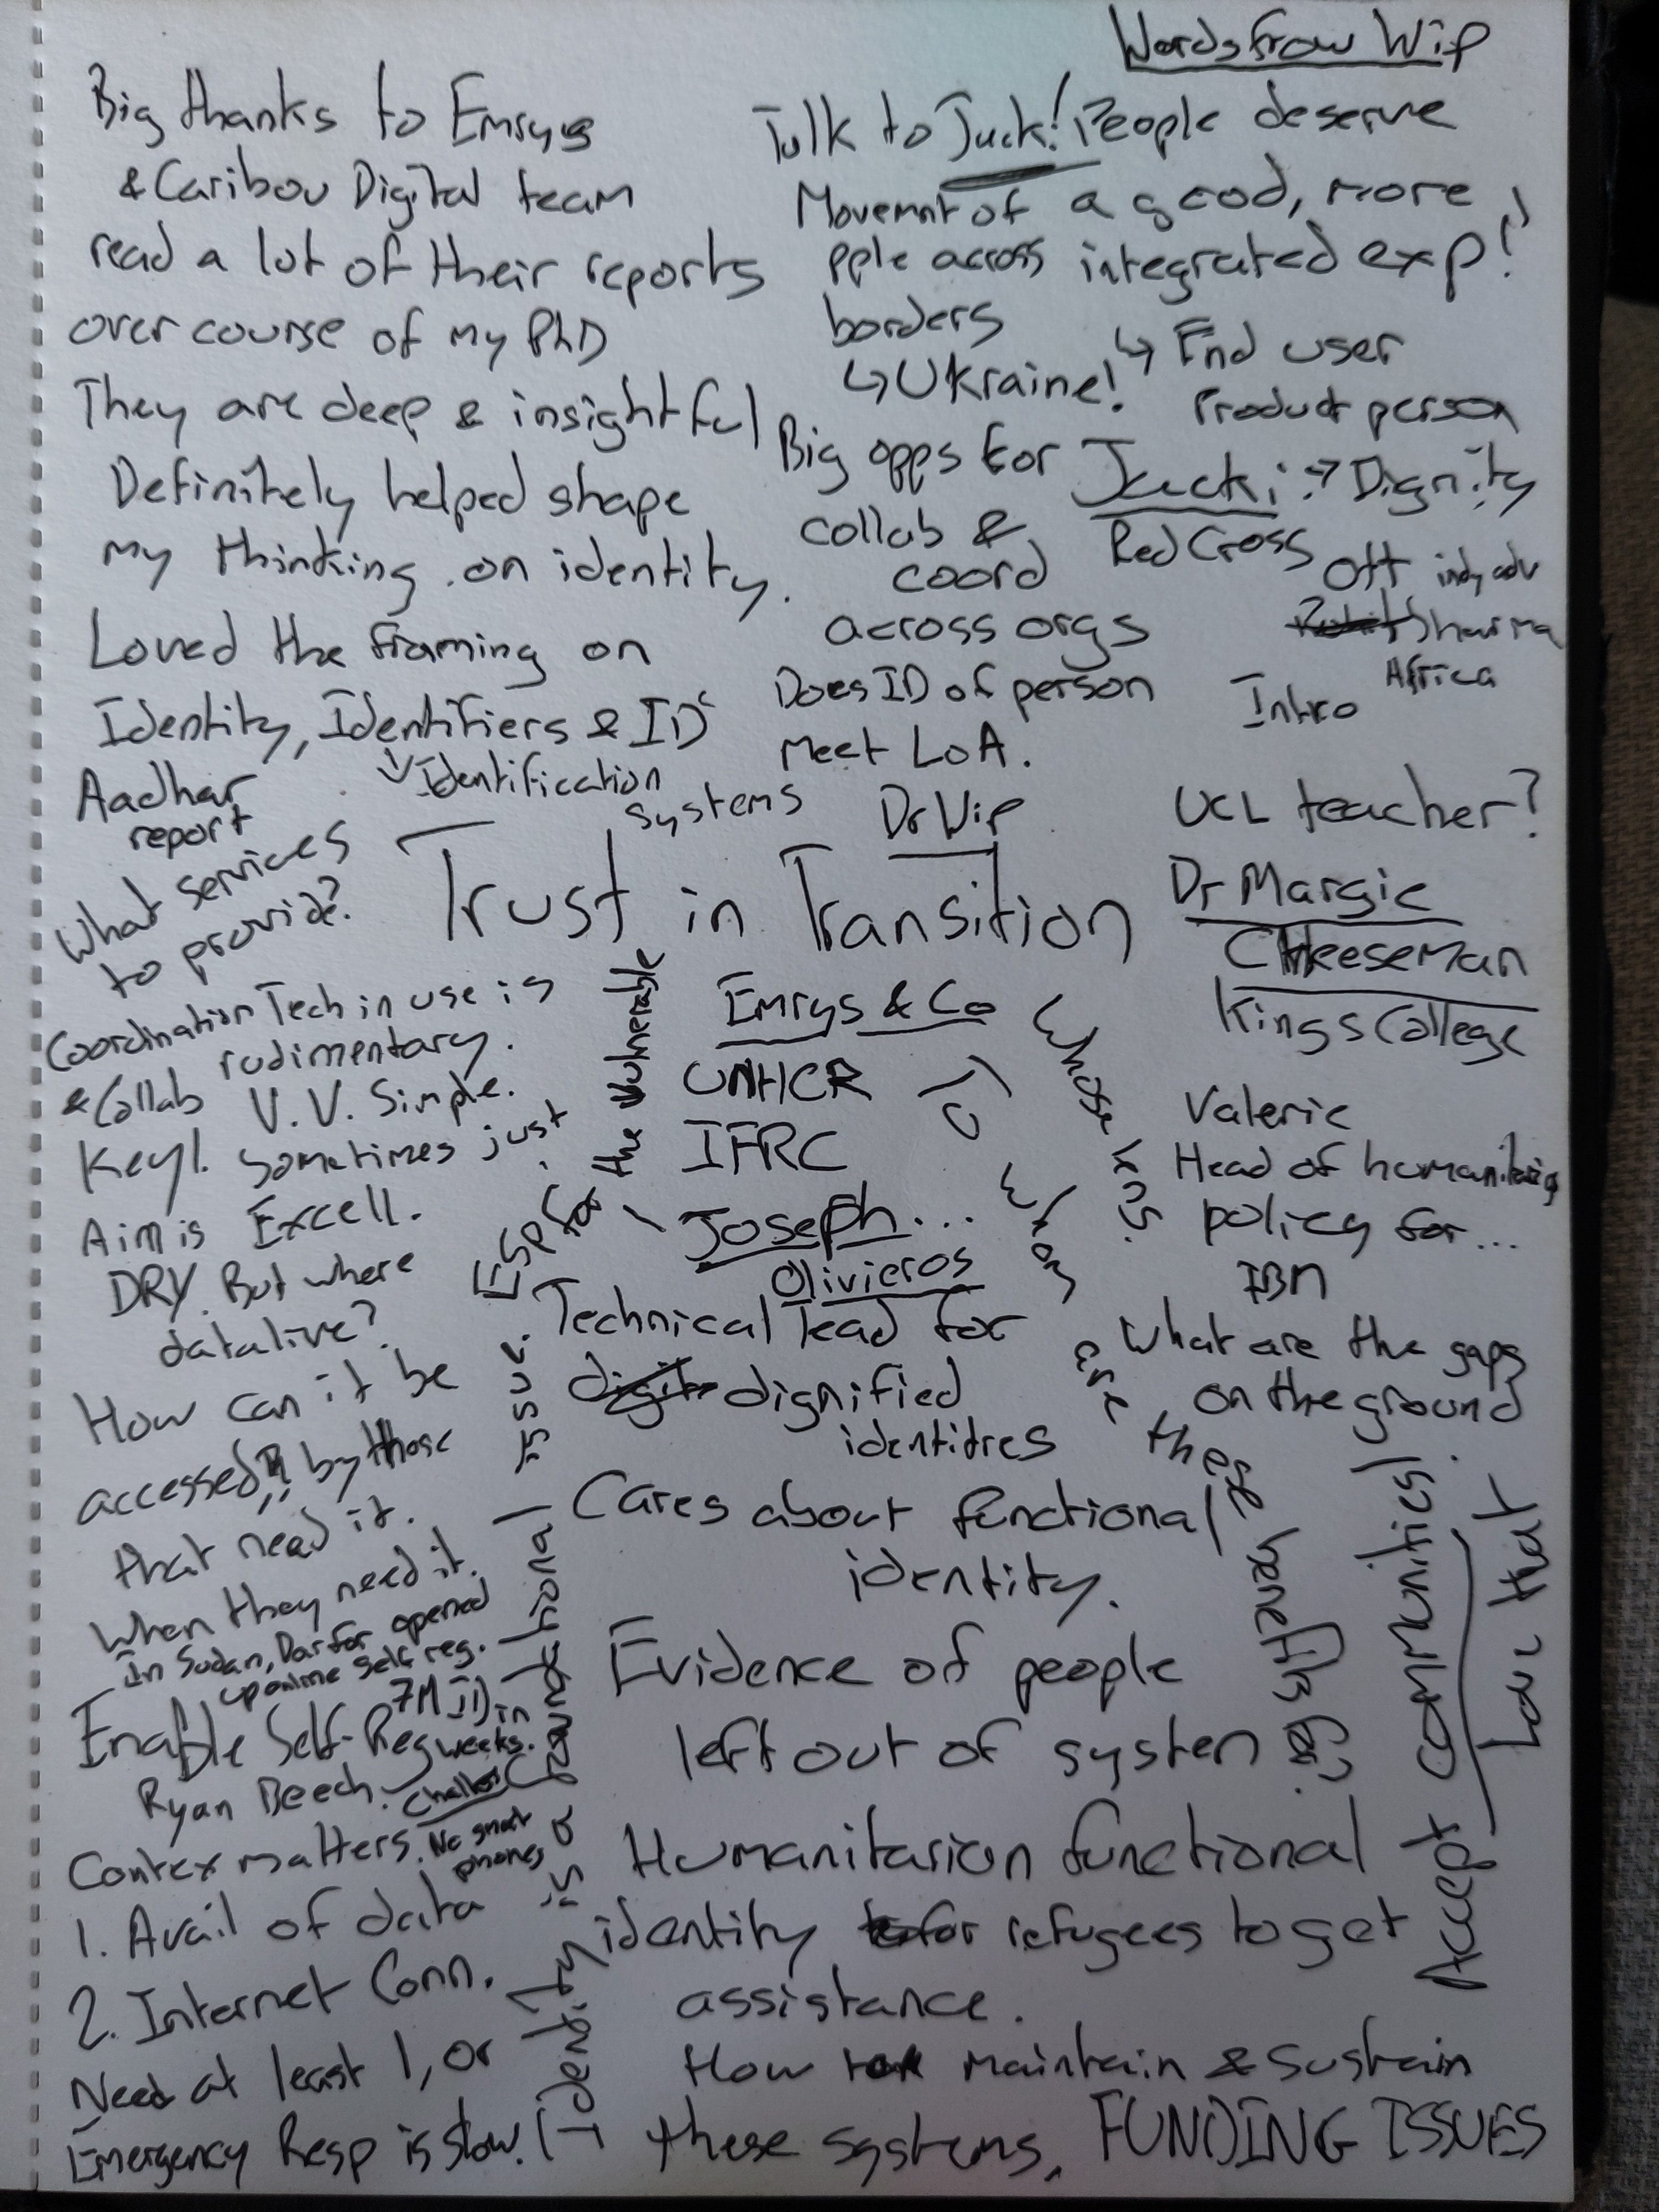 Words from Wip
Big thanks to Emrys
& Caribou Digital team
read a lot of their reports
over course of my PhD
They are deep & insightful
Definitely helped shape
my thinking on identity.
Loved the framing on
Identity, Identifiers & ID
↳ Identification
systems
Aadhar
report
What services
to provide?
Coordination Tech in use is
& Collab rudimentary.
V. V. Simple.
Key 1. Sometimes just
Aim is Excell.
DRY. But where
data live?
How can it be
accessed?! by those
that need it.
When they need it.
In Sudan, Darfor opened
up online self reg.
7M ID in
weeks.
Enable Self-Reg
Ryan Beech.
Challes
Contex matters. No smart
phones
1. Avail of data
2. Internet Conn.
Need at least 1, or
Emergency Resp is slow.
Talk to Jack!
Movemnt of
pple across
borders
↳ Ukraine!
Big opps for
collab &
coord
across orgs
Does ID of person
meet LoA.
People deserve
a good, more
integrated exp!
↳ End user
Product person
Jacki → Dignity
Red Cross
Off indy adv
Sharma
Africa
Intro
Dr Wip
UCL teacher?
Trust in Transition
Dr Margie
CHeeseman
Kings College
Emrys & Co
UNHCR
IFRC
Joseph...
Olivieros
Technical lead for
dignified
identitres
Cares about functional
identity.
Evidence of people
left out of system
Humanitarian functional
identity for refugees to get
assistance.
How to maintain & sustain
these systems. FUNDING ISSUES
Valerie
Head of humanitarian
policy for...
IBM
What are the gaps
on the ground
Whose lens.
To whom are these benefits for?
Accept communities!
Law that
Identity is a foundational issue.
Esp for the vulnerable